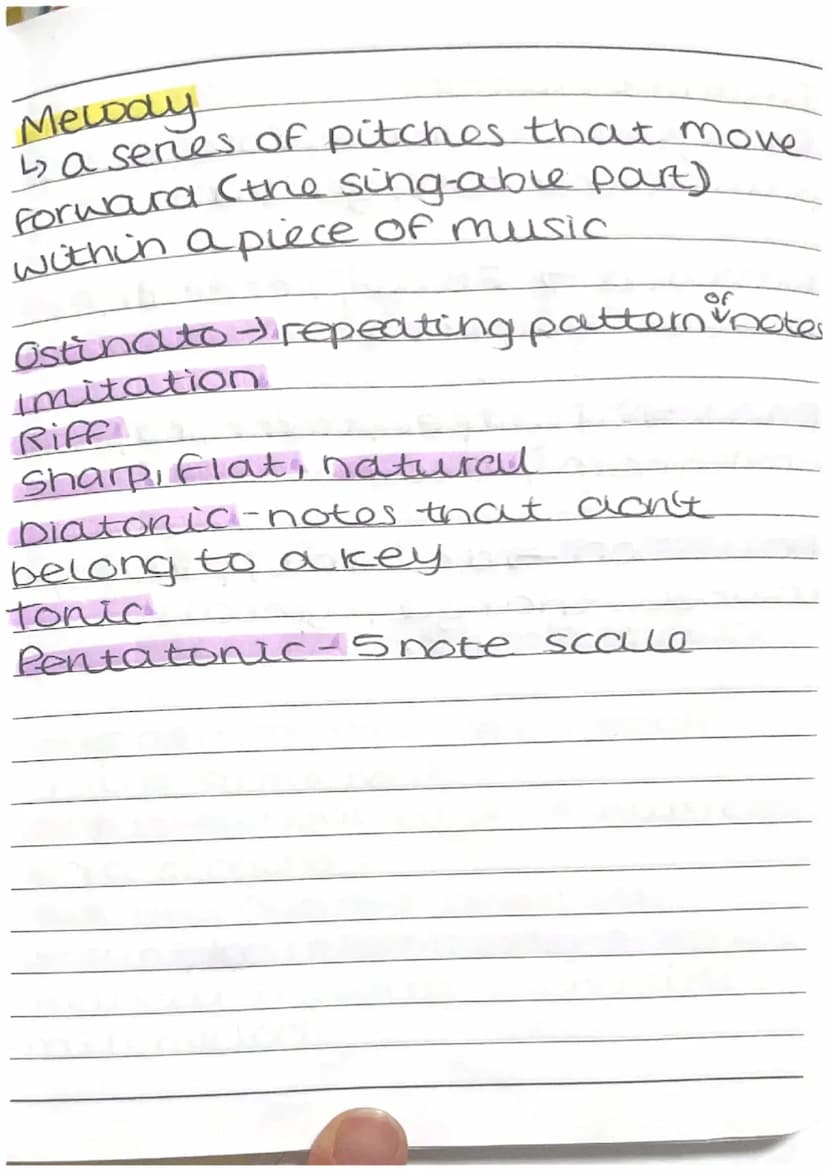 Melody
↳ a series of pitches that move
forward (the sing-able part)
within a piece of music
Ostinato → repeating pattern of notes
Imitation
Riff
Sharp, flat, natural
Diatonic - notes that don't
belong to a key
tonic
Pentatonic - 5 note scale